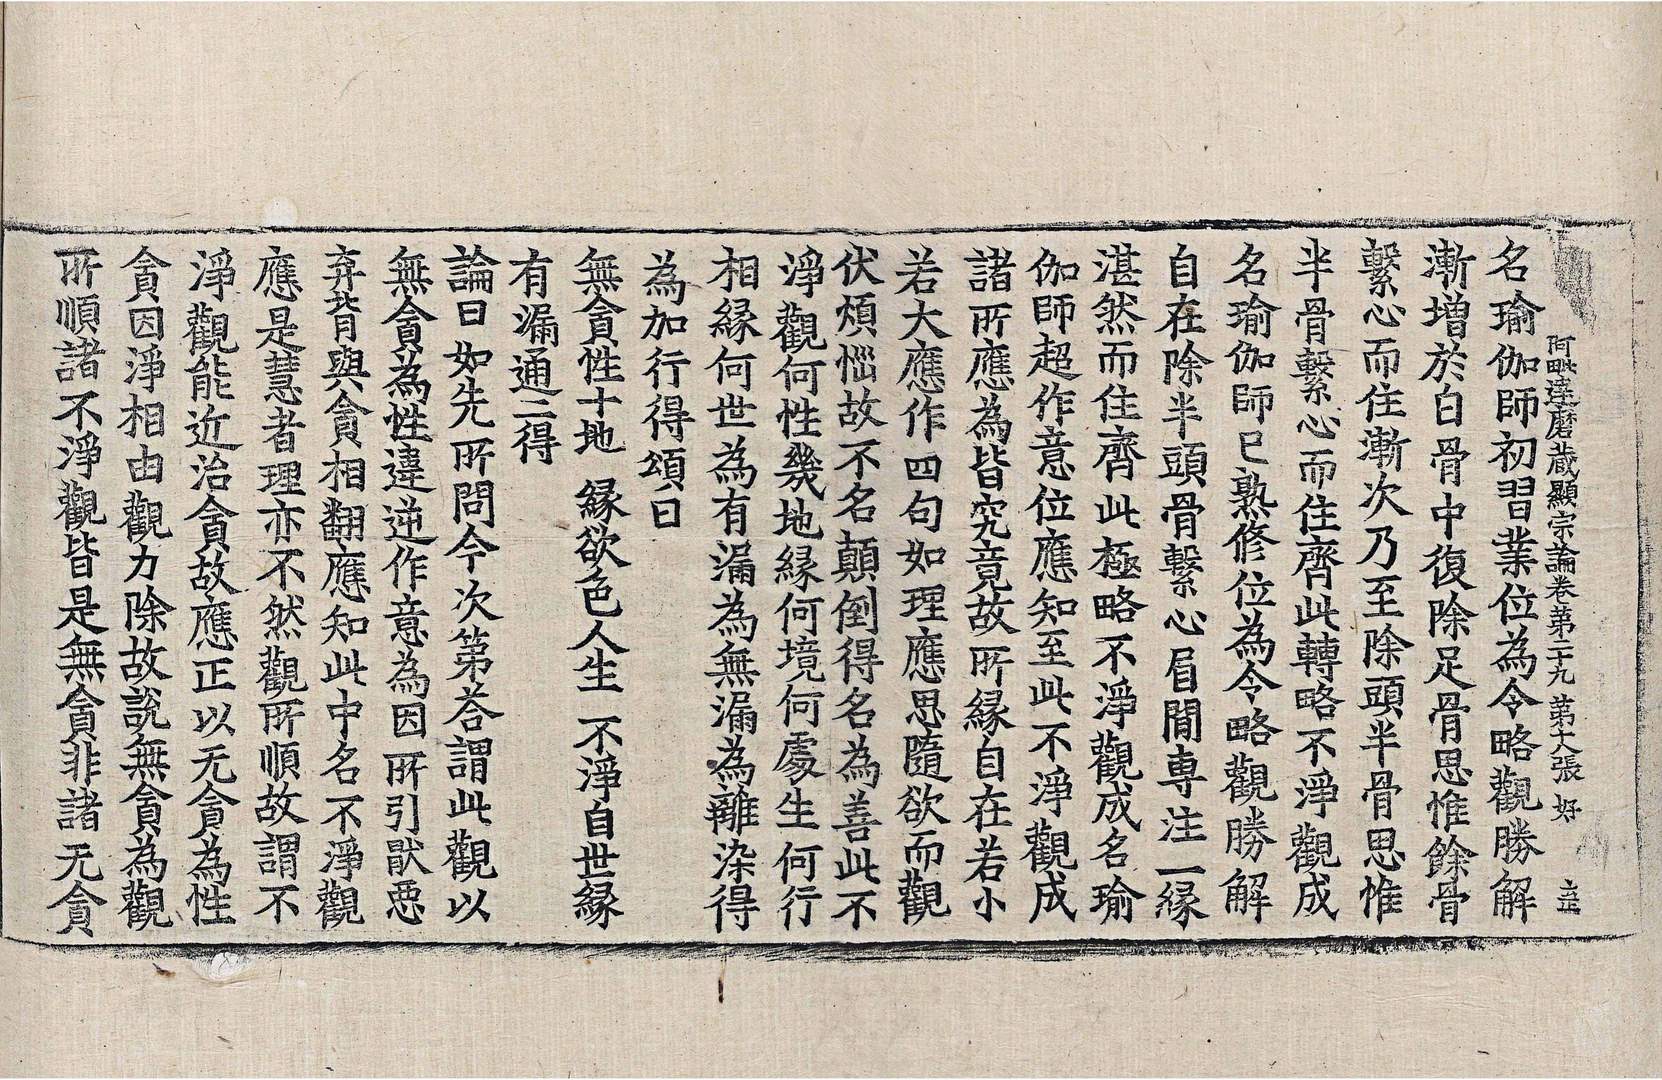 阿毗達磨藏顯宗論卷第二十九 第六張 好
名瑜伽師初習業位為令略觀勝解
漸增於白骨中復除足骨思惟餘骨
繫心而住漸次乃至除頭半骨思惟
半骨繫心而住齊此轉略不淨觀成
名瑜伽師已熟修位為令略觀勝解
自在除半頭骨繫心眉間專注一緣
湛然而住齊此極略不淨觀成名瑜
伽師超作意位應知至此不淨觀成
諸所應為皆究竟故所緣自在若小
若大應作四句如理應思隨欲而觀
伏煩惱故不名顛倒得名為善此不
淨觀何性幾地緣何境何處生何行
相緣何世為有漏為無漏為離染得
為加行得頌曰
無貪性十地 緣欲色人生 不淨自世緣
有漏通二得
論曰如先所問今次第荅謂此觀以
無貪為性違逆作意為因所引猒惡
弃背與貪相翻應知此中名不淨觀
應是慧者理亦不然觀所順故謂不
淨觀能近治貪故應正以无貪為性
貪因淨相由觀力除故說無貪為觀
所順諸不淨觀皆是無貪非諸无貪